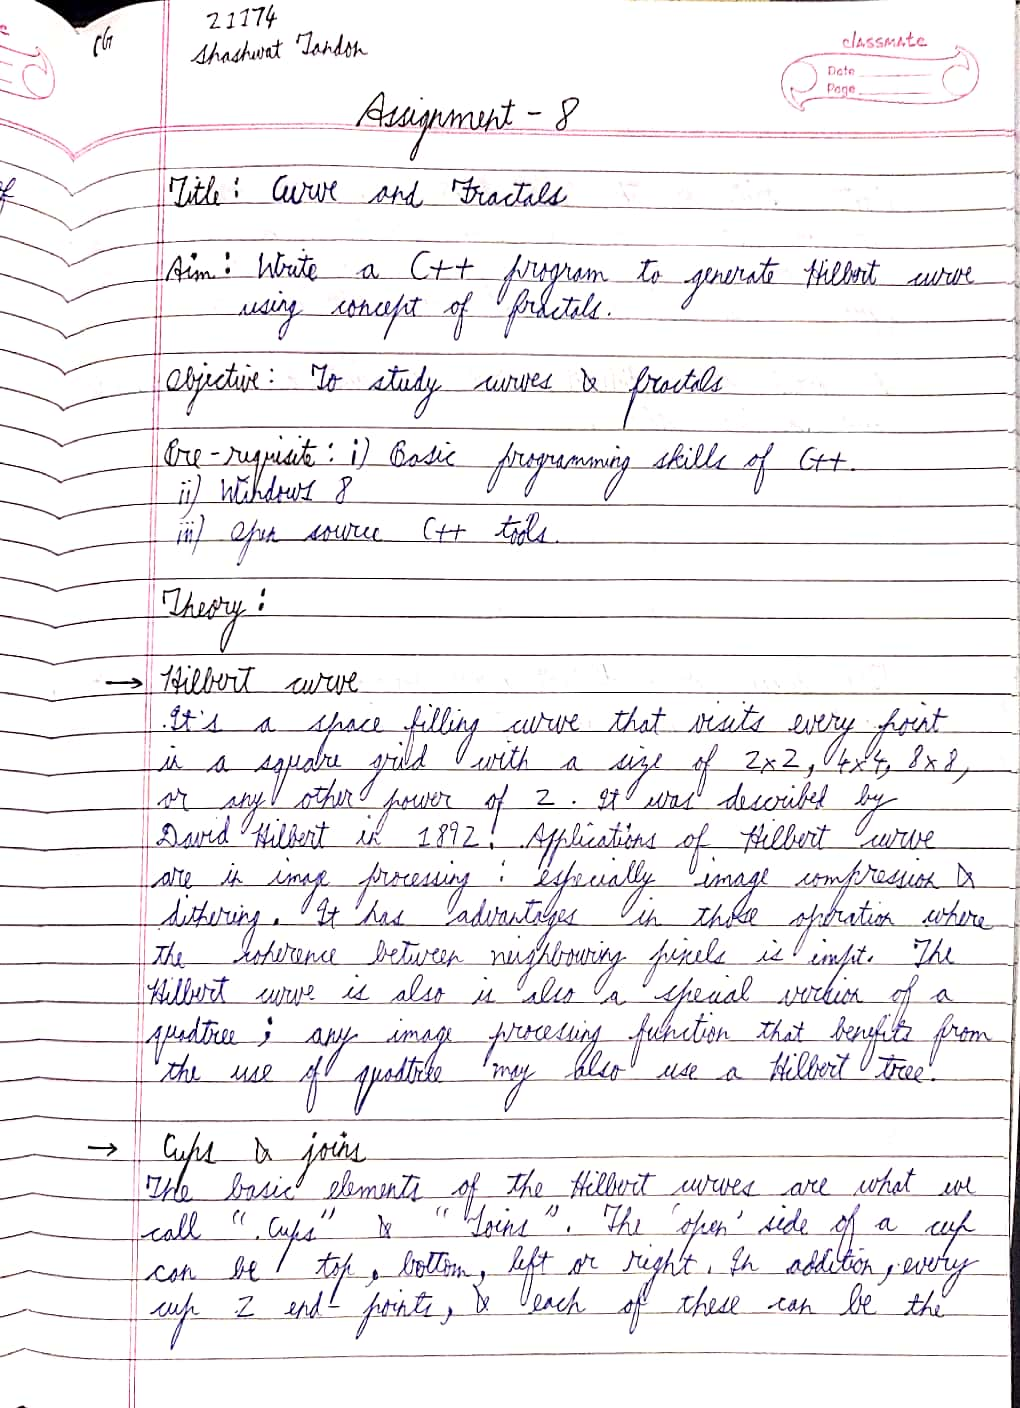 CG
21174
Shashwat Tandon
classmate
Date
Page
Assignment - 8
Title: Curve and Fractals
Aim: Write a C++ program to generate Hilbert curve
using concept of fractals.
Objective: To study curves & fractals
Pre-requisite: i) Basic programming skills of C++.
ii) Windows 8
iii) Open source C++ tools.
Theory:
→ Hilbert curve
It's a space filling curve that visits every point
in a square grid with a size of 2x2, 4x4, 8x8,
or any other power of 2. It was described by
David Hilbert in 1892. Applications of Hilbert curve
are in image processing : especially image compression &
dithering. It has advantages in those operation where
the coherence between neighbouring pixels is impt. The
Hilbert curve is also is also a special version of a
quadtree ; any image processing function that benefits from
the use of quadtree may also use a Hilbert tree.
→ Cups & joins
The basic elements of the Hilbert curves are what we
call "Cups" & "Joins". The 'open' side of a cup
can be top, bottom, left or right. In addition, every
cup 2 end-points, & each of these can be the